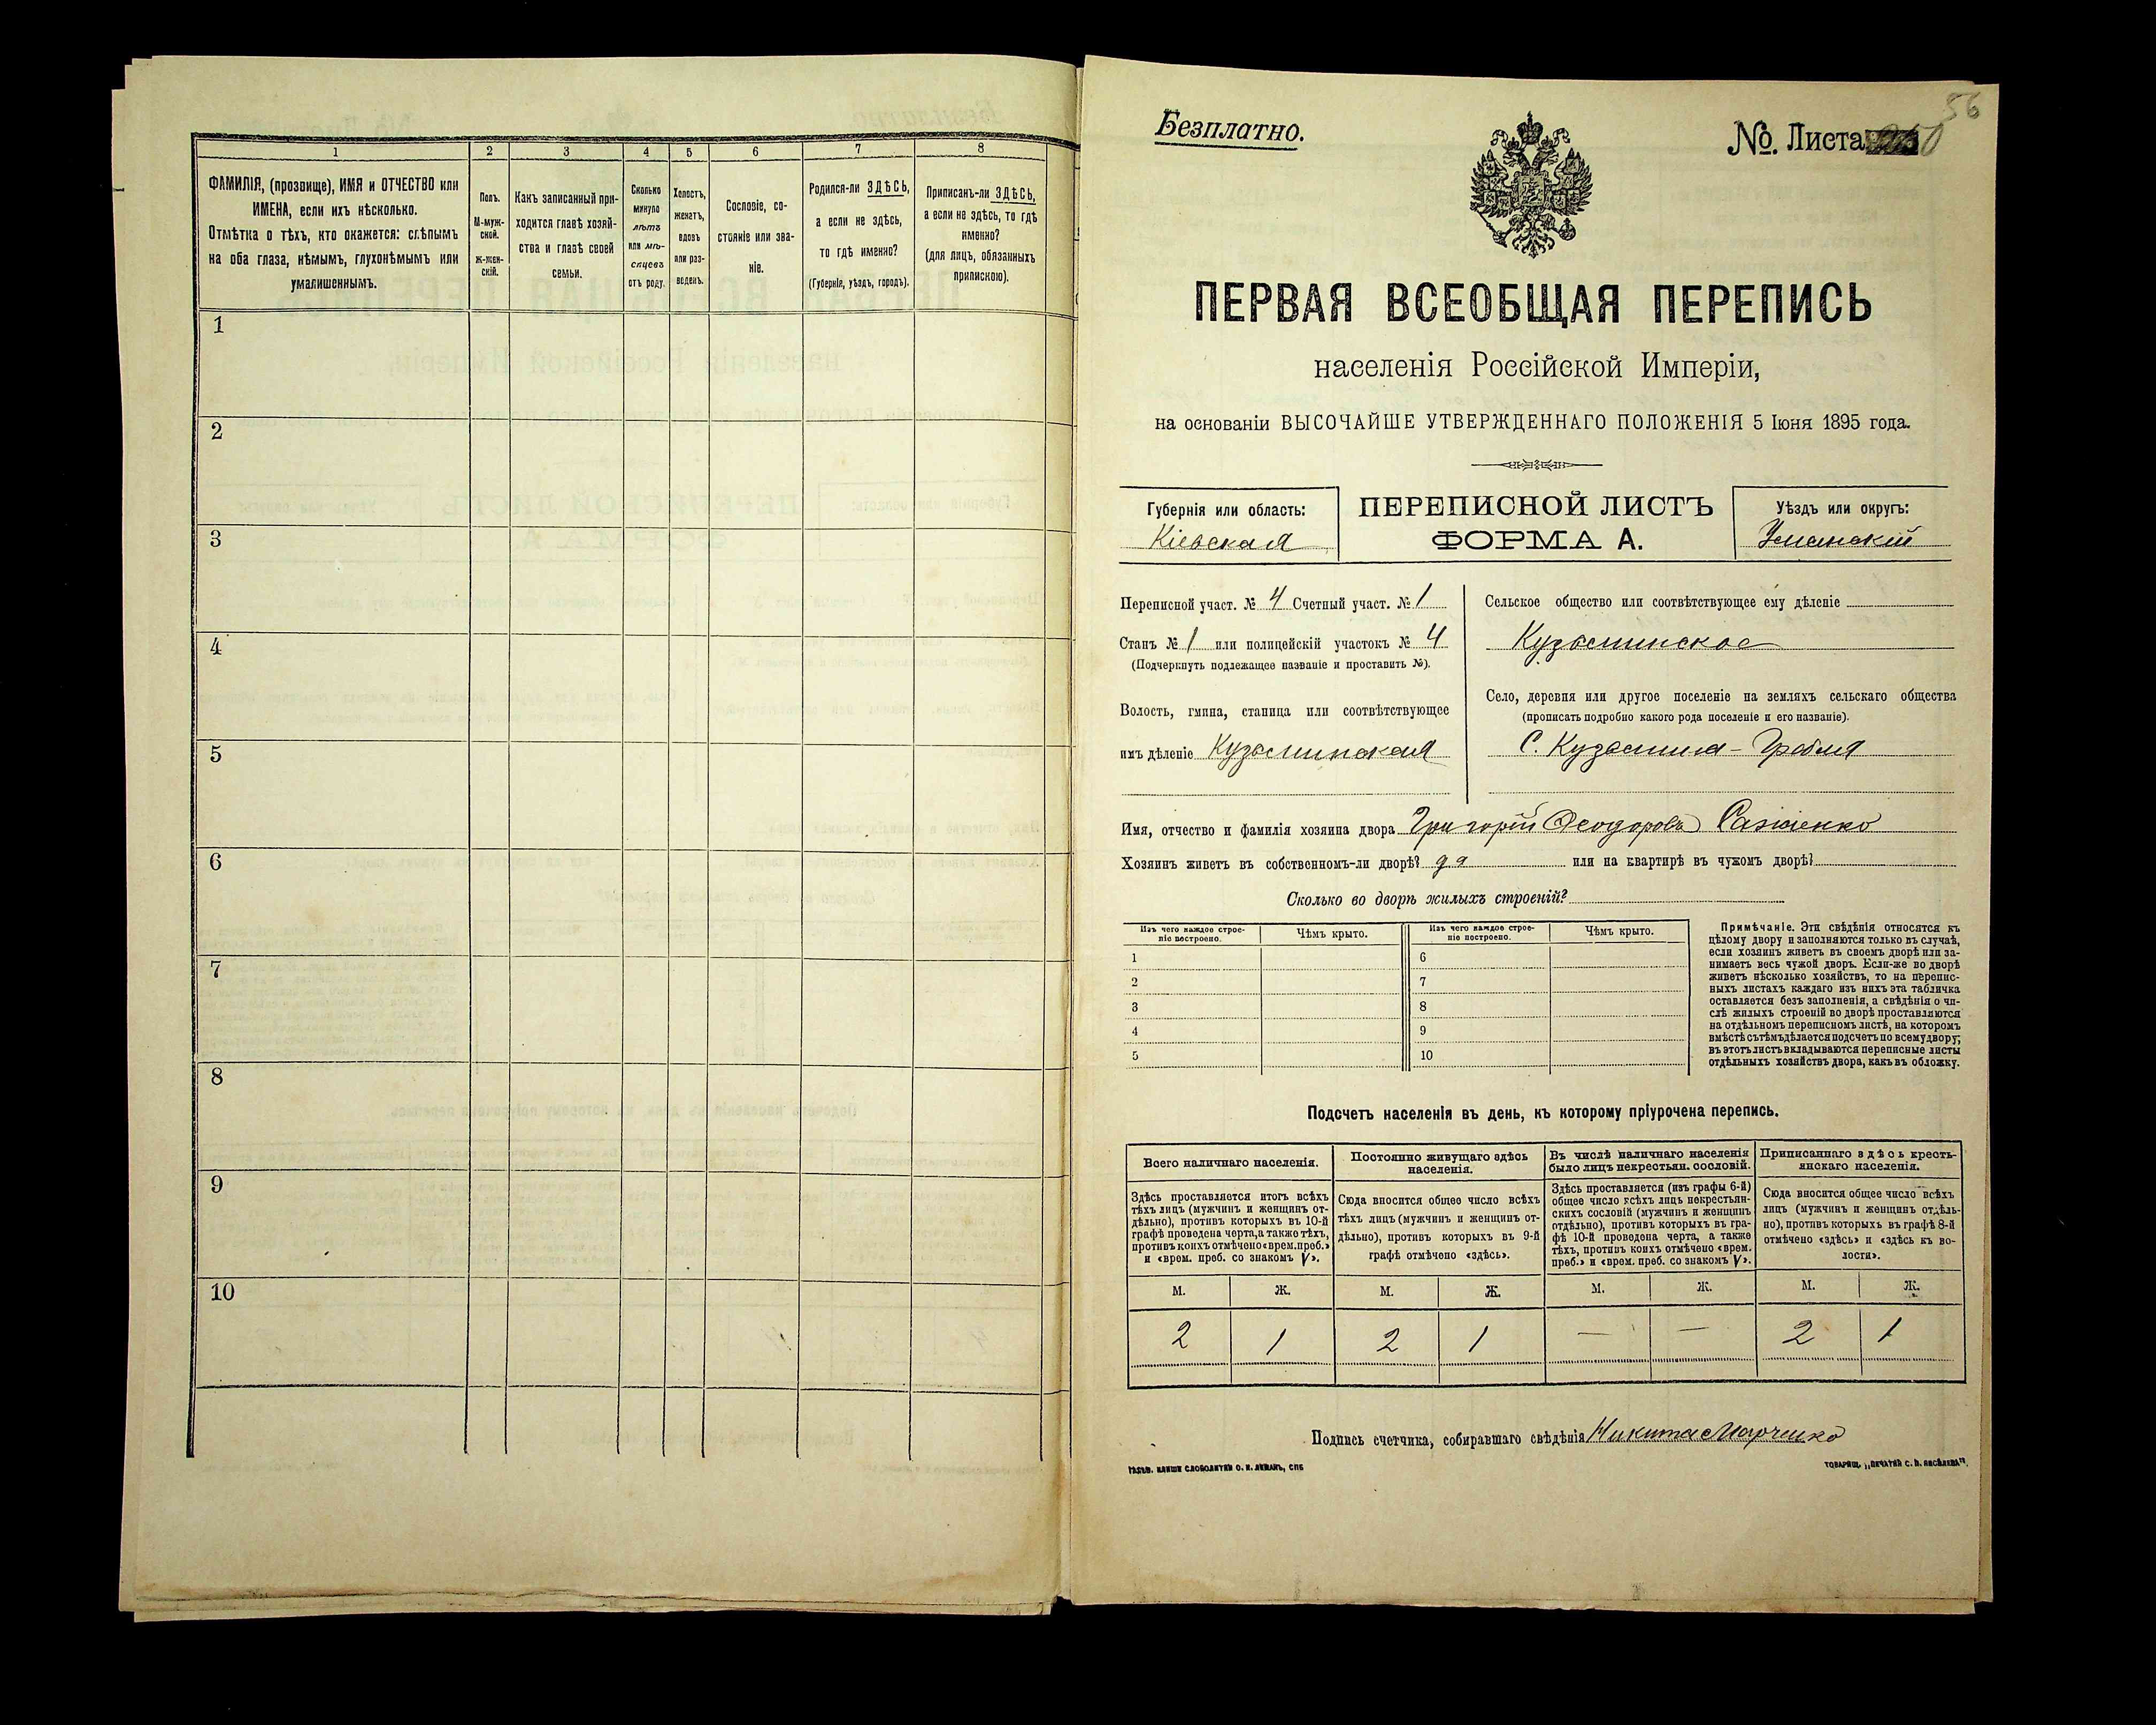 1 2 3 4 5 6 7 8
ФАМИЛІЯ, (прозвище), ИМЯ и ОТЧЕСТВО или
ИМЕНА, если ихъ нѣсколько.
Отмѣтка о тѣхъ, кто окажется: слѣпымъ
на оба глаза, нѣмымъ, глухонѣмымъ или
умалишеннымъ.
Полъ.
М-муж-
ской.
ж-жен-
скій.
Какъ записанный при-
ходится главѣ хозяй-
ства и главѣ своей
семьи.
Сколько
минуло
лѣтъ
или мѣ-
сяцевъ
отъ роду.
Холостъ,
женатъ,
вдовъ
или раз-
веденъ.
Сословіе, со-
стояніе или зва-
ніе.
Родился-ли ЗДѢСЬ,
а если не здѣсь,
то гдѣ именно?
(Губернія, уѣздъ, городъ).
Приписанъ-ли ЗДѢСЬ,
а если не здѣсь, то гдѣ
именно?
(для лицъ, обязанныхъ
припискою).
1
2
3
4
5
6
7
8
9
10
56
Безплатно.
№. Листа
ПЕРВАЯ ВСЕОБЩАЯ ПЕРЕПИСЬ
населенія Россійской Имперіи,
на основаніи ВЫСОЧАЙШЕ УТВЕРЖДЕННАГО ПОЛОЖЕНІЯ 5 Іюня 1895 года.
Губернія или область:
Кіевская
ПЕРЕПИСНОЙ ЛИСТЪ
ФОРМА А.
Уѣздъ или округъ:
Уманскій
Переписной участ. № 4 Счетный участ. № 1
Станъ № 1 или полицейскій участокъ № 4
(Подчеркнуть подлежащее названіе и проставить №).
Волость, гмина, станица или соотвѣтствующее
имъ дѣленіе Кузьминская
Сельское общество или соотвѣтствующее ему дѣленіе
Кузьминское
Село, деревня или другое поселеніе на земляхъ сельскаго общества
(прописать подробно какого рода поселеніе и его названіе).
С. Кузьмина-Гребля
Имя, отчество и фамилія хозяина двора Григорій Ѳеодоровъ
Хозяинъ живетъ въ собственномъ-ли дворѣ? да или на квартирѣ въ чужомъ дворѣ?
Сколько во дворѣ жилыхъ строеній?
Изъ чего каждое строе-
ніе построено.
Чѣмъ крыто.
Изъ чего каждое строе-
ніе построено.
Чѣмъ крыто.
1 6
2 7
3 8
4 9
5 10
Примѣчаніе. Эти свѣдѣнія относятся къ
цѣлому двору и заполняются только въ случаѣ,
если хозяинъ живетъ въ своемъ дворѣ или за-
нимаетъ весь чужой дворъ. Если-же во дворѣ
живетъ нѣсколько хозяйствъ, то на перепис-
ныхъ листахъ каждаго изъ нихъ эта табличка
оставляется безъ заполненія, а свѣдѣнія о чи-
слѣ жилыхъ строеній во дворѣ проставляются
на отдѣльномъ переписномъ листѣ, на которомъ
вмѣстѣ съ тѣмъ дѣлается подсчетъ по всему двору;
въ этотъ листъ вкладываются переписные листы
отдѣльныхъ хозяйствъ двора, какъ въ обложку.
Подсчетъ населенія въ день, къ которому пріурочена перепись.
Всего наличнаго населенія.
Здѣсь проставляется итогъ всѣхъ
тѣхъ лицъ (мужчинъ и женщинъ от-
дѣльно), противъ которыхъ въ 10-й
графѣ проведена черта, а также тѣхъ,
противъ коихъ отмѣчено «врем. преб.»
и «врем. преб. со знакомъ V».
Постоянно живущаго здѣсь
населенія.
Сюда вносится общее число всѣхъ
тѣхъ лицъ (мужчинъ и женщинъ от-
дѣльно), противъ которыхъ въ 9-й
графѣ отмѣчено «здѣсь».
Въ числѣ наличнаго населенія
было лицъ некрестьян. сословій.
Здѣсь проставляется (изъ графы 6-й)
общее число всѣхъ лицъ некрестьян-
скихъ сословій (мужчинъ и женщинъ
отдѣльно), противъ которыхъ въ гра-
фѣ 10-й проведена черта, а также
тѣхъ, противъ коихъ отмѣчено «врем.
преб.» и «врем. преб. со знакомъ V».
Приписаннаго здѣсь кресть-
янскаго населенія.
Сюда вносится общее число всѣхъ
лицъ (мужчинъ и женщинъ отдѣль-
но), противъ которыхъ въ графѣ 8-й
отмѣчено «здѣсь» и «здѣсь къ во-
лости».
М. Ж. М. Ж. М. Ж. М. Ж.
2 1 2 1 — — 2 1
Подпись счетчика, собиравшаго свѣдѣнія Никита Марченко